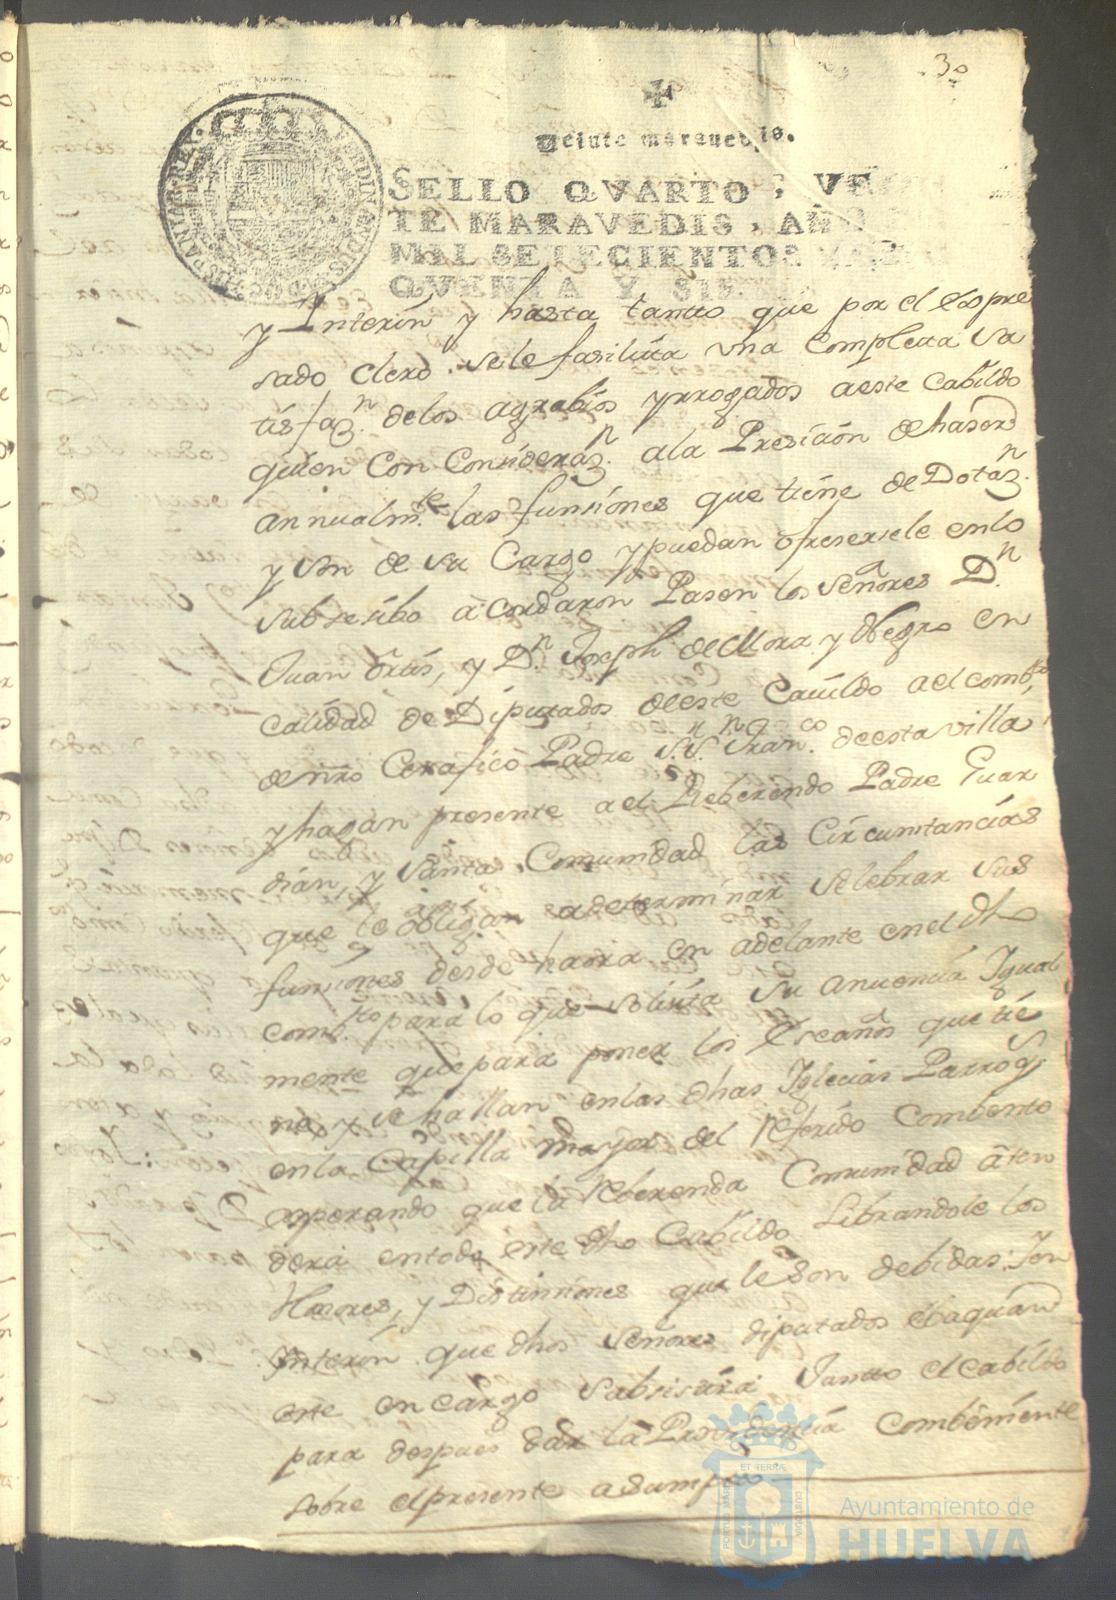 30
Veinte maravedis.
SELLO QVARTO, VE
TE MARAVEDIS, AÑO
MIL SETECIENTOS
QVENTA Y SIE
y Interin y hasta tantto que por el Espre
sado Clero se le fasilita una Completa sa
tisfaz.n de los agrabios yrrogados a este Cabildo
quien Con Consideraz.n a la Presición de haser
annualm.te las funsiones que tiene de Dotaz.n
y son de su Cargo y puedan ofreserse le en lo
subsesibo acordaron Pasen los señores D.n
Juan y D.n Joseph de Mora y Negro en
calidad de Diputados de este Cavildo a el comb.to
de nro Cerafico Padre S.r S.n Fran.co de esta villa
y hagan presente a el Reberendo Padre Guar
dian, y santa Comunidad las Circunstancias
que le obligan a determinar selebrar sus
funsiones desde haora en adelante en el dho
comb.to para lo que solisita su anuencia Igual
mente que para poner los Escaños que tie
ne y se hallan en las dhas Iglecias Parroq.s
en la Capilla mayor del referido Combento
esperando que la Reberenda Comunidad aten
derá en todo a este dho Cabildo Librandole los
Honores, y Distinsiones que le son debidas: Y en
interin que dhos señores diputados ebaquan
este encargo subsistirá Juntto el Cabildo
para despues dar la Providencia Combeniente
sobre el presente asumpto
Ayuntamiento de
HUELVA